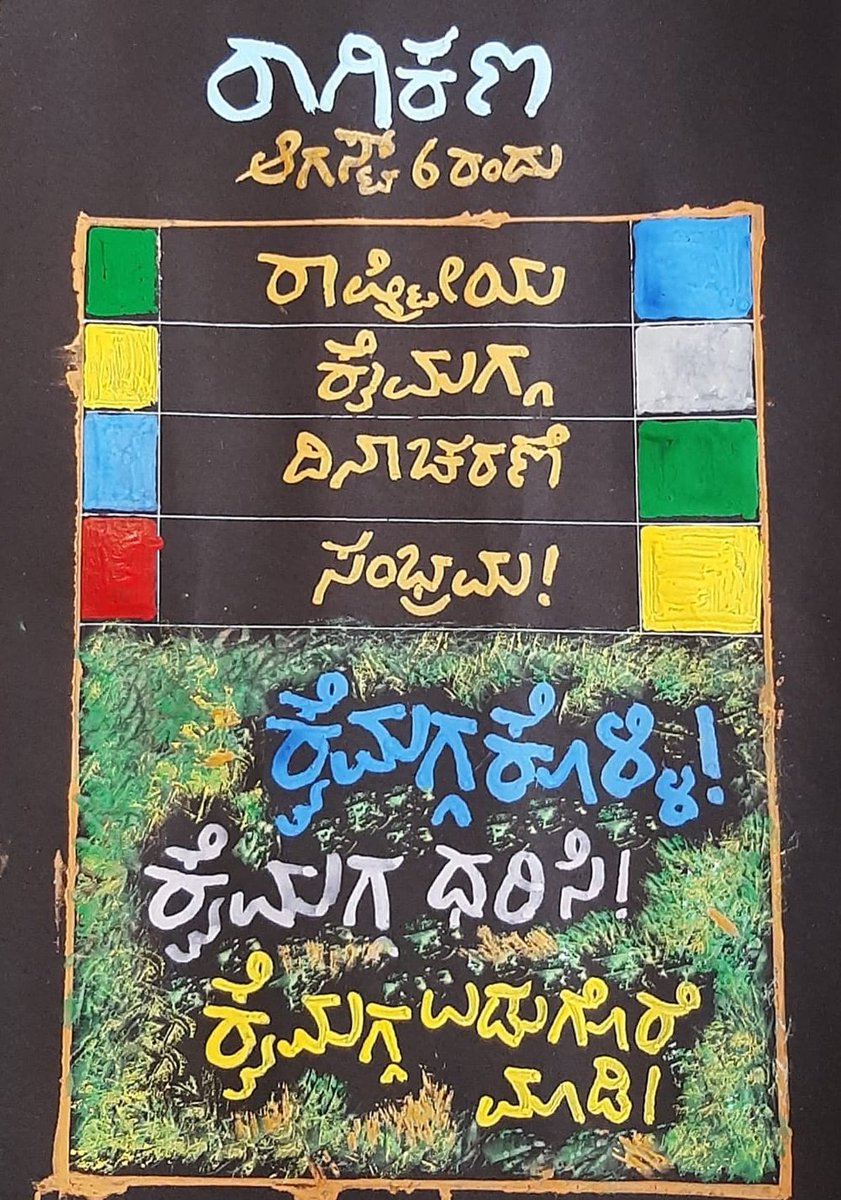 ರಾಗಿಕಣ
ಆಗಸ್ಟ್ 6 ರಂದು
ರಾಷ್ಟ್ರೀಯ
ಕೈಮಗ್ಗ
ದಿನಾಚರಣೆ
ಸಂಭ್ರಮ!
ಕೈಮಗ್ಗ ಕೊಳ್ಳಿ!
ಕೈಮಗ್ಗ ಧರಿಸಿ!
ಕೈಮಗ್ಗ ಉಡುಗೊರೆ
ಮಾಡಿ!